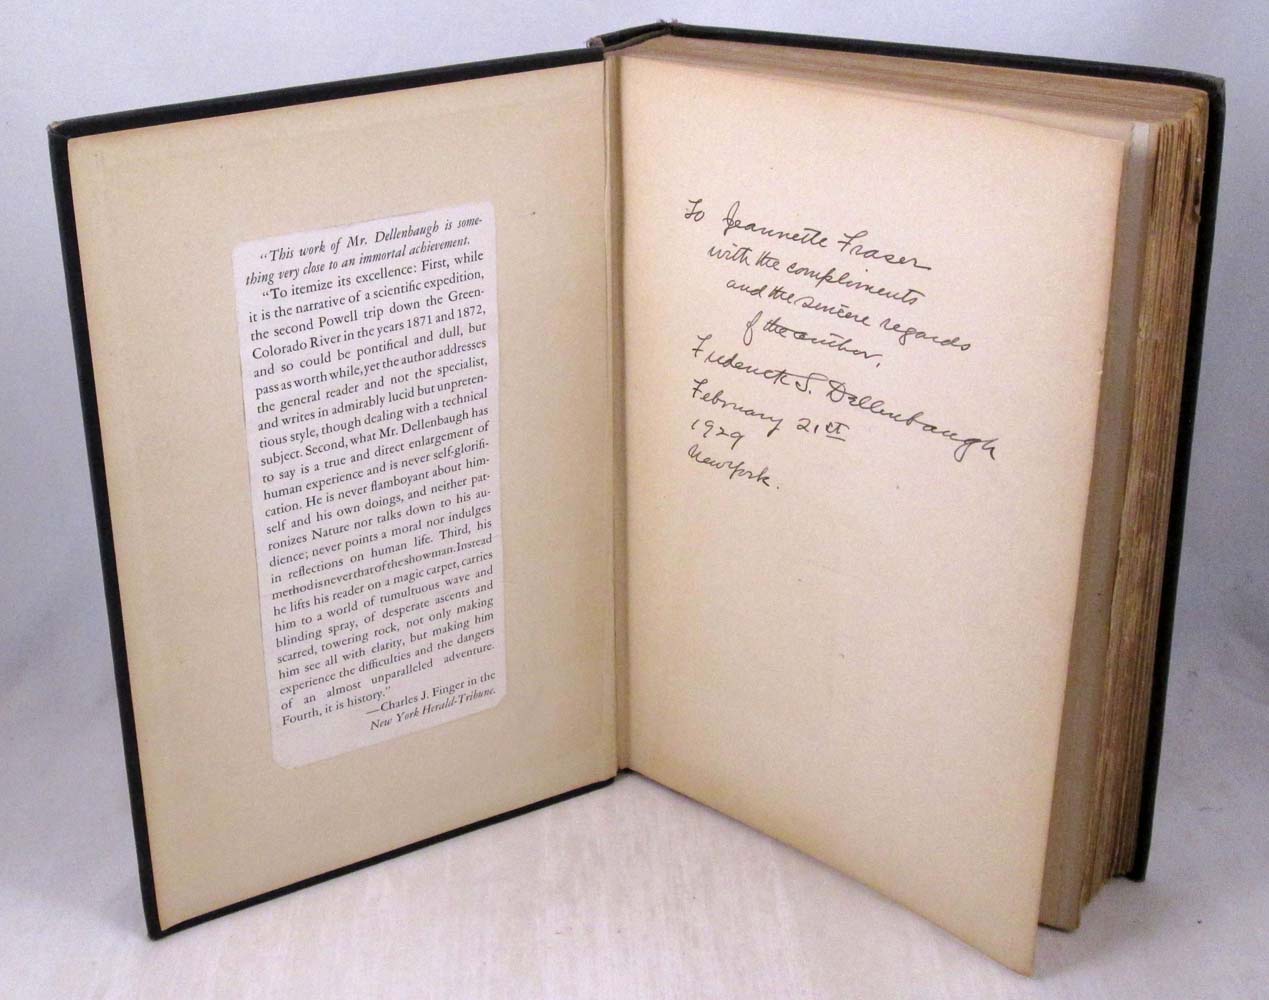 "This work of Mr. Dellenbaugh is some-
thing very close to an immortal achievement.
"To itemize its excellence: First, while
it is the narrative of a scientific expedition,
the second Powell trip down the Green-
Colorado River in the years 1871 and 1872,
and so could be pontifical and dull, but
pass as worth while, yet the author addresses
the general reader and not the specialist,
and writes in admirably lucid but unpreten-
tious style, though dealing with a technical
subject. Second, what Mr. Dellenbaugh has
to say is a true and direct enlargement of
human experience and is never self-glorifi-
cation. He is never flamboyant about him-
self and his own doings, and neither pat-
ronizes Nature nor talks down to his au-
dience; never points a moral nor indulges
in reflections on human life. Third, his
method is never that of the showman. Instead
he lifts his reader on a magic carpet, carries
him to a world of tumultuous wave and
blinding spray, of desperate ascents and
scarred, towering rock, not only making
him see all with clarity, but making him
experience the difficulties and the dangers
of an almost unparalleled adventure.
Fourth, it is history."
—Charles J. Finger in the
New York Herald-Tribune.
To Jeannette Fraser
with the compliments
and the sincere regards
of the author,
Frederick S. Dellenbaugh
February 21st
1929
New York.